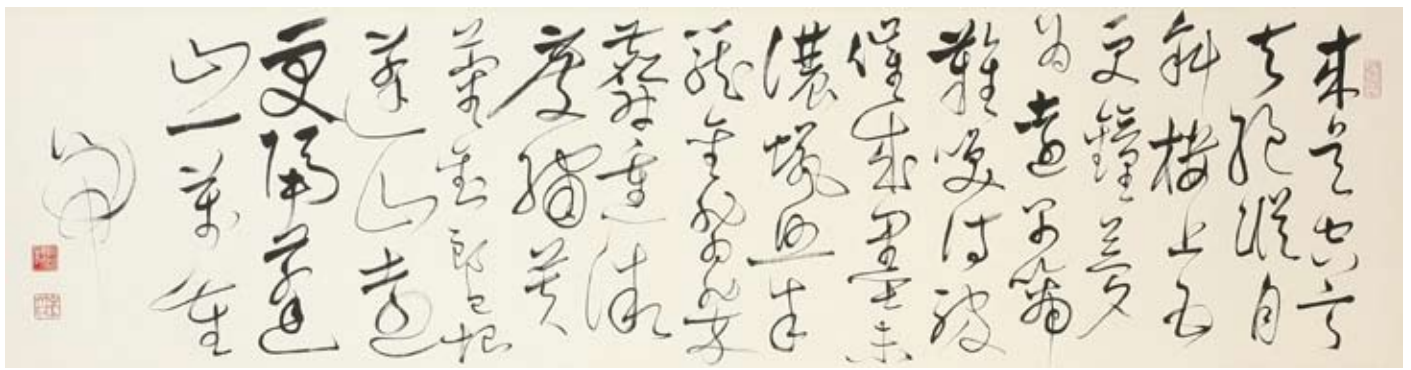 來是空言
去絕蹤月
斜樓上五
更鐘夢
為遠別啼
難喚書被
催成墨未
濃蠟照半
籠金翡翠
麝熏微
度繡芙
蓉劉郎已恨
蓬山遠
更隔蓬
山一萬重